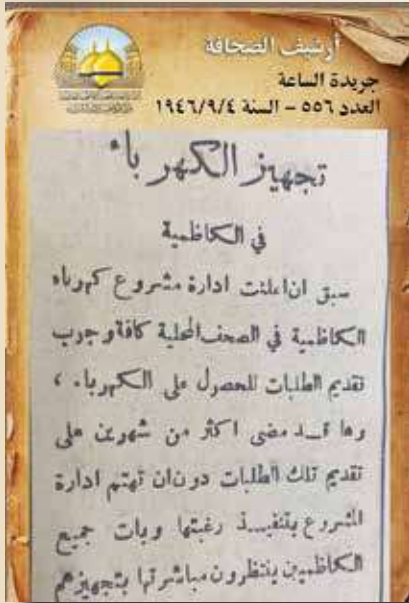 أرشيف الصحافة
جريدة الساعة
العدد ٥٥٦ - السنة ١٩٤٦/٩/٤
تجهيز الكهرباء
في الكاظمية
سبق ان اعلنت ادارة مشروع كهرباء
الكاظمية في الصحف المحلية كافة وجوب
تقديم الطلبات للحصول على الكهرباء ،
وها قد مضى اكثر من شهرين على
تقديم تلك الطلبات دون ان تهتم ادارة
المشروع بتنفيذ رغبتها وبات جميع
الكاظميين ينتظرون مباشرتها بتجهيزهم